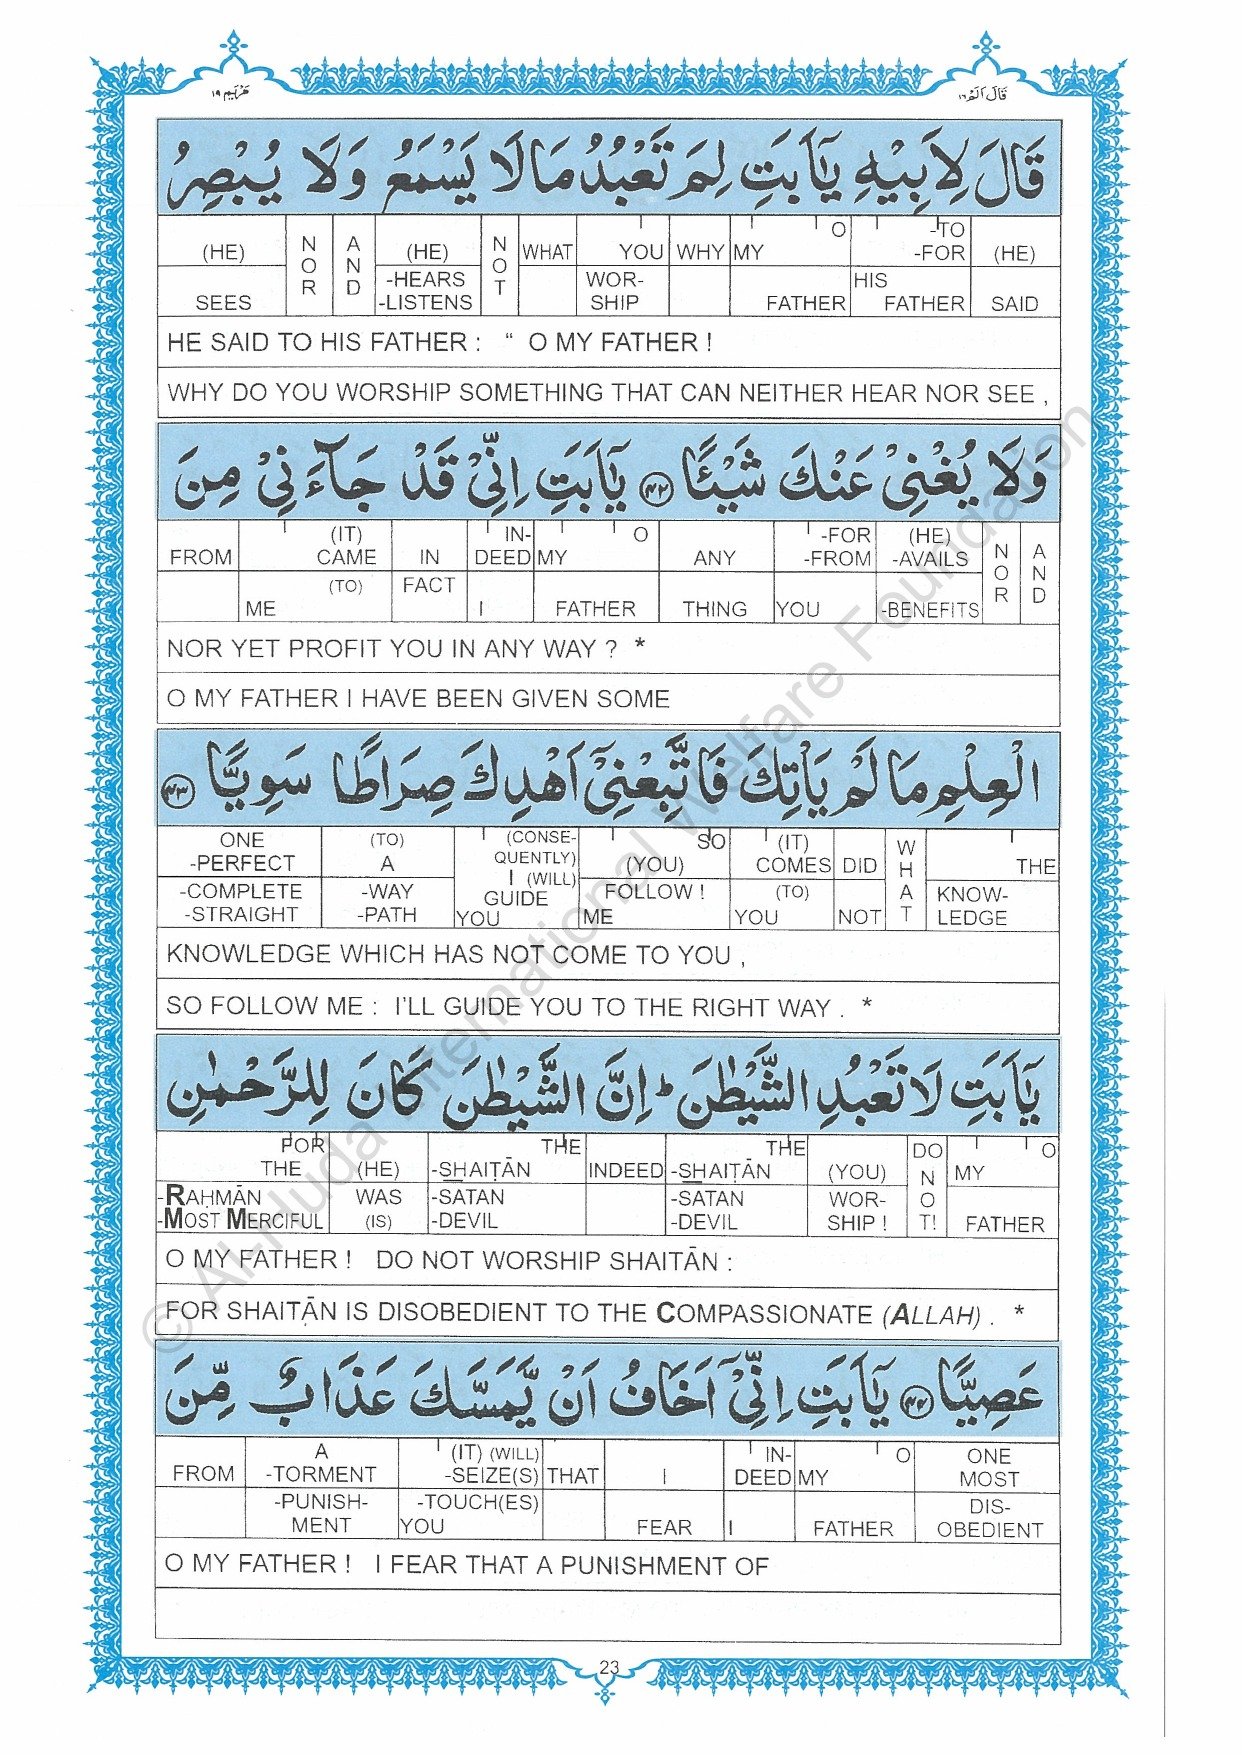 مَرْيَم ١٩
قَالَ اَلَمْ ١٦
قَالَ لِاَبِيْهِ يٰۤاَبَتِ لِمَ تَعْبُدُ مَا لَا يَسْمَعُ وَلَا يُبْصِرُ
(HE) SEES | NOR | AND | (HE) -HEARS -LISTENS | NOT | WHAT | YOU WORSHIP | WHY | O MY FATHER | -TO -FOR HIS FATHER | (HE) SAID
HE SAID TO HIS FATHER : “ O MY FATHER !
WHY DO YOU WORSHIP SOMETHING THAT CAN NEITHER HEAR NOR SEE ,
وَلَا يُغْنِيْ عَنْكَ شَيْئًا ﴿٤٢﴾ يٰۤاَبَتِ اِنِّيْ قَدْ جَآءَنِيْ مِنَ
FROM | (IT) CAME (TO) ME | IN FACT | IN-DEED I | O MY FATHER | ANY THING | -FOR -FROM YOU | (HE) -AVAILS -BENEFITS | NOR | AND
NOR YET PROFIT YOU IN ANY WAY ? *
O MY FATHER I HAVE BEEN GIVEN SOME
الْعِلْمِ مَا لَمْ يَاْتِكَ فَاتَّبِعْنِيْۤ اَهْدِكَ صِرَاطًا سَوِيًّا ﴿٤٣﴾
ONE -PERFECT -COMPLETE -STRAIGHT | (TO) A -WAY -PATH | (CONSE-QUENTLY) I (WILL) GUIDE YOU | SO (YOU) FOLLOW ! ME | (IT) COMES (TO) YOU | DID NOT | WHAT | THE KNOW-LEDGE
KNOWLEDGE WHICH HAS NOT COME TO YOU ,
SO FOLLOW ME : I’LL GUIDE YOU TO THE RIGHT WAY . *
يٰۤاَبَتِ لَا تَعْبُدِ الشَّيْطٰنَ ؕ اِنَّ الشَّيْطٰنَ كَانَ لِلرَّحْمٰنِ
FOR THE -RAḤMĀN -MOST MERCIFUL | (HE) WAS (IS) | THE -SHAIṬĀN -SATAN -DEVIL | INDEED | THE -SHAIṬĀN -SATAN -DEVIL | (YOU) WOR-SHIP ! | DO NOT! | O MY FATHER
O MY FATHER ! DO NOT WORSHIP SHAITĀN :
FOR SHAIṬĀN IS DISOBEDIENT TO THE COMPASSIONATE (ALLAH) . *
عَصِيًّا ﴿٤٤﴾ يٰۤاَبَتِ اِنِّيْۤ اَخَافُ اَنْ يَّمَسَّكَ عَذَابٌ مِّنَ
FROM | A -TORMENT -PUNISH-MENT | (IT) (WILL) -SEIZE(S) -TOUCH(ES) YOU | THAT | I FEAR | IN-DEED I | O MY FATHER | ONE MOST DIS-OBEDIENT
O MY FATHER ! I FEAR THAT A PUNISHMENT OF
23
© Al-Huda International Welfare Foundation